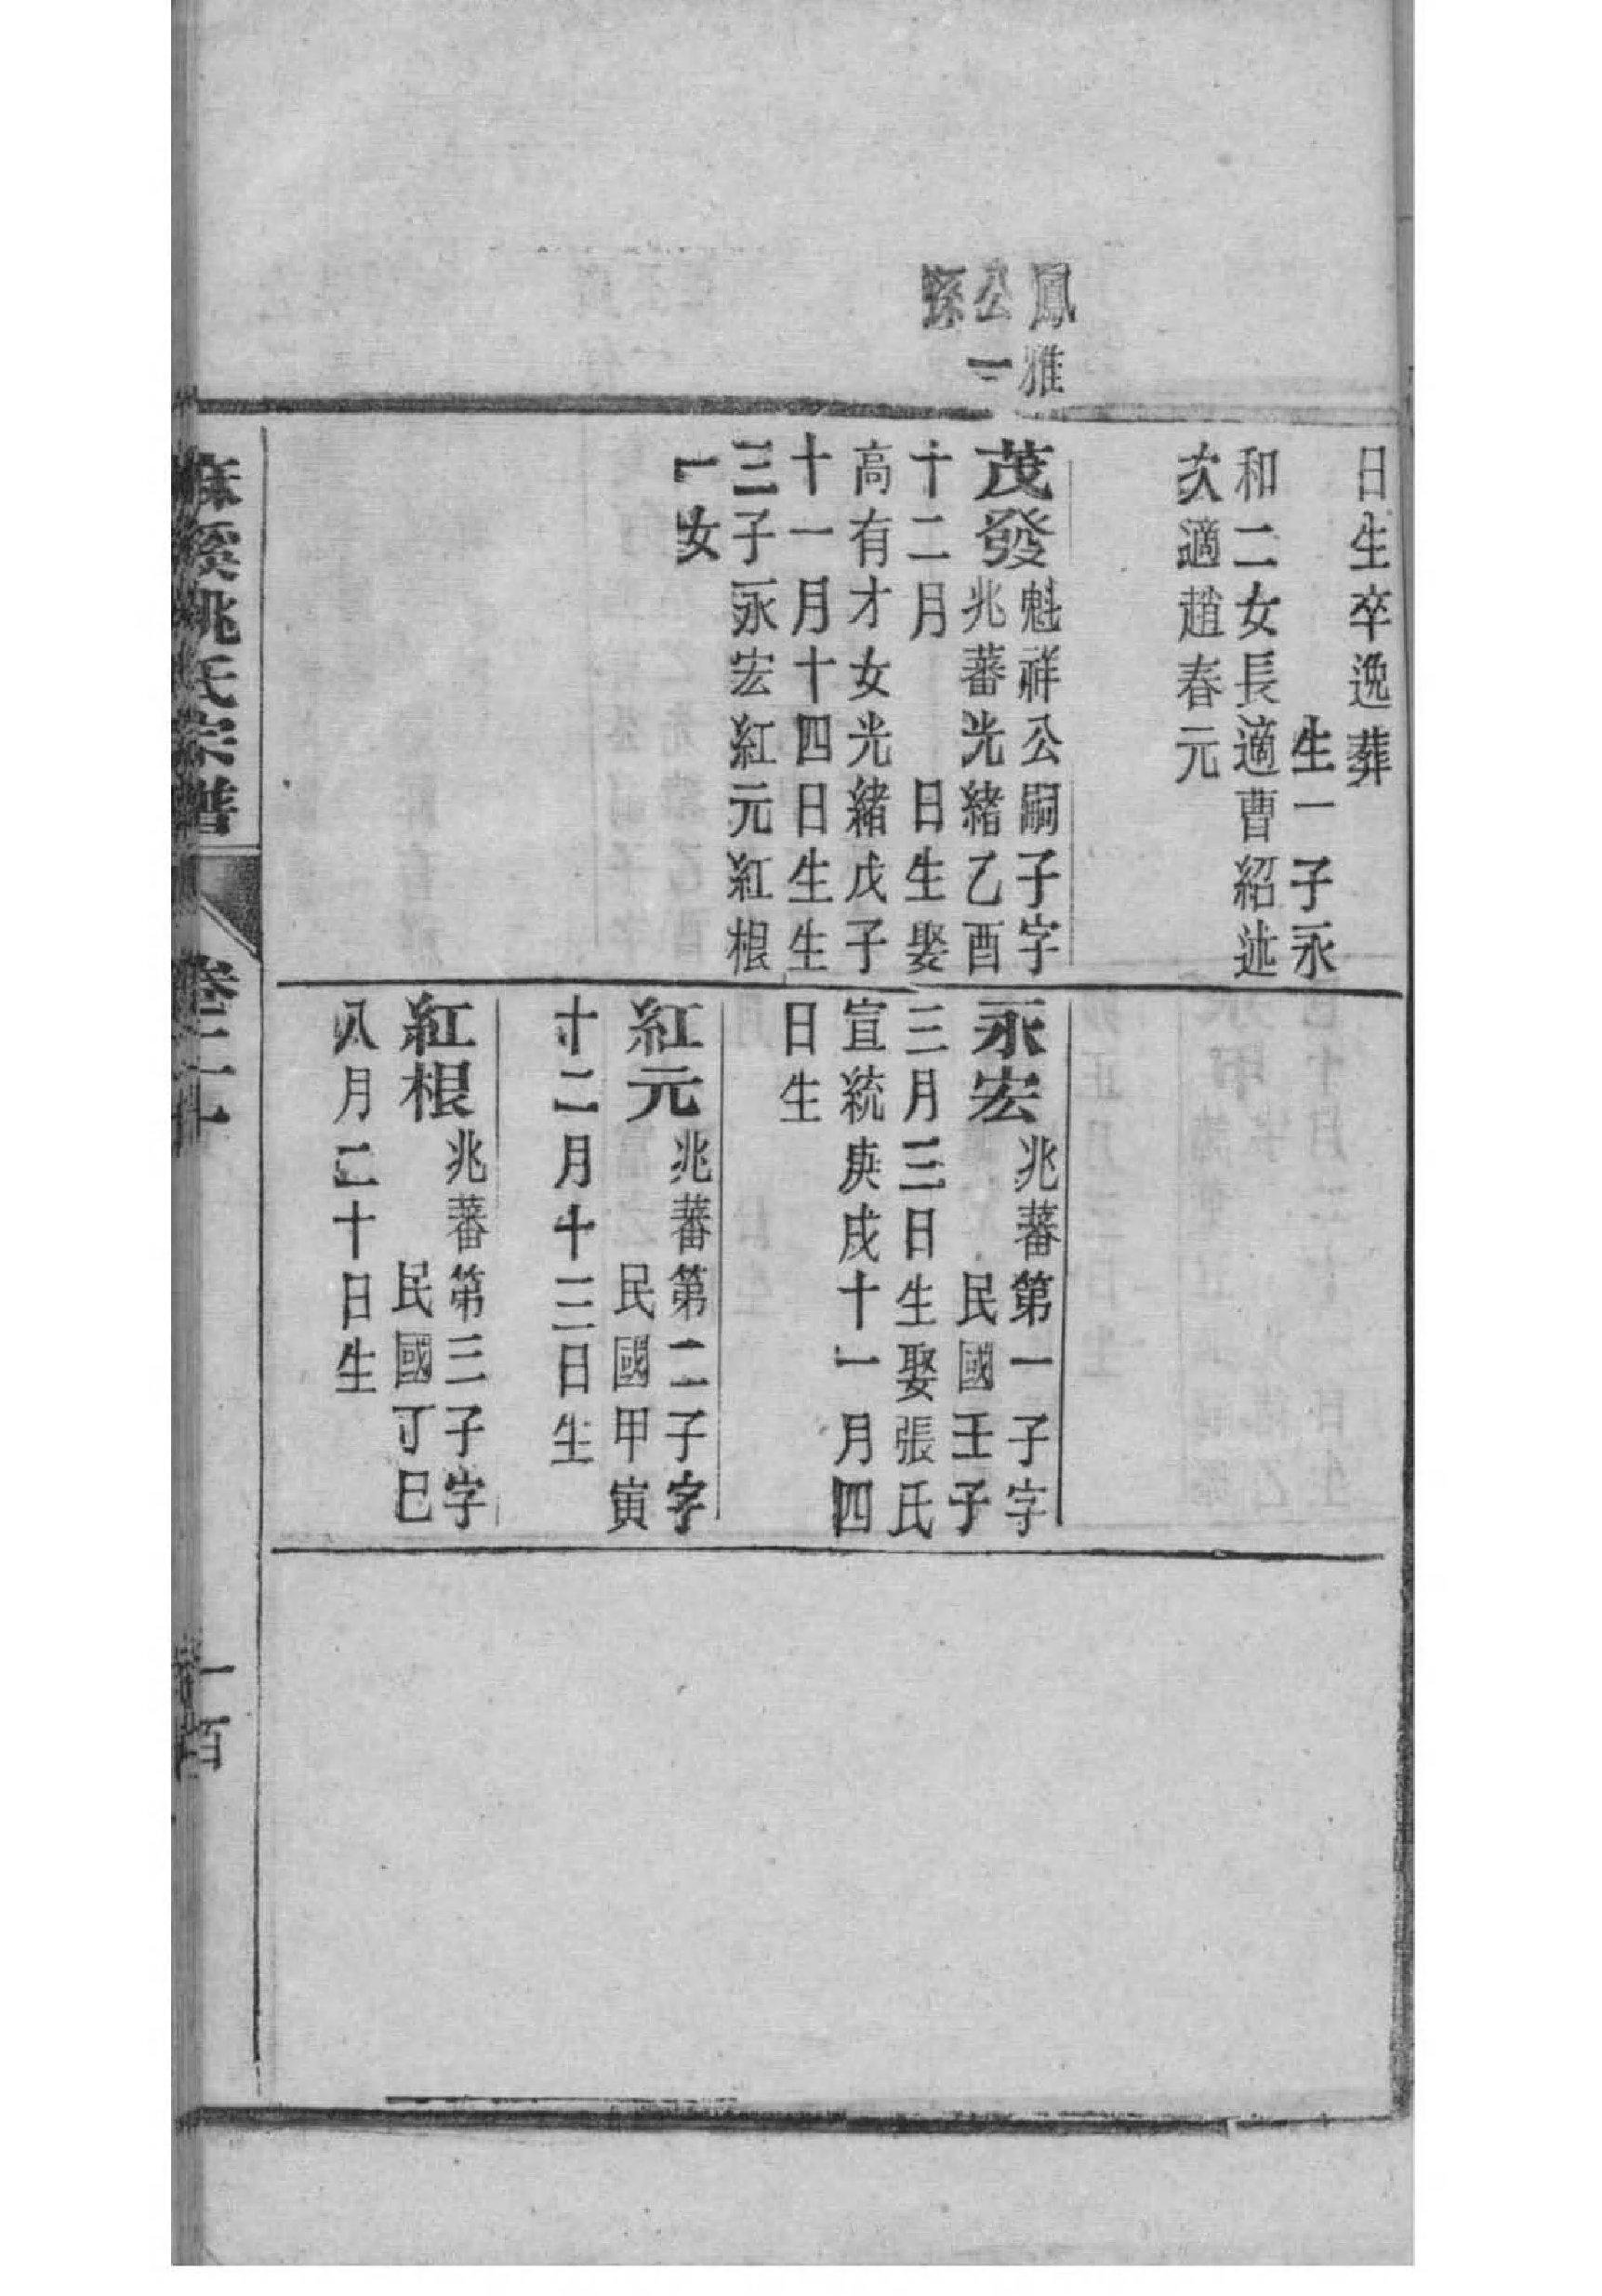 鳳雅
公一
孫
日生卒逸葬
生一子永
和二女長適曹紹述
次適趙春元
茂發魁祥公嗣子字
兆蕃光緒乙酉
十二月 日生娶
高有才女光緒戊子
十一月十四日生生
三子永宏紅元紅根
一女
永宏兆蕃第一子字
民國壬子
三月三日生娶張氏
宣統庚戌十一月四
日生
紅元兆蕃第二子字
民國甲寅
十二月十三日生
紅根兆蕃第三子字
民國丁巳
八月二十日生
麻溪姚氏宗譜
卷二十
一百